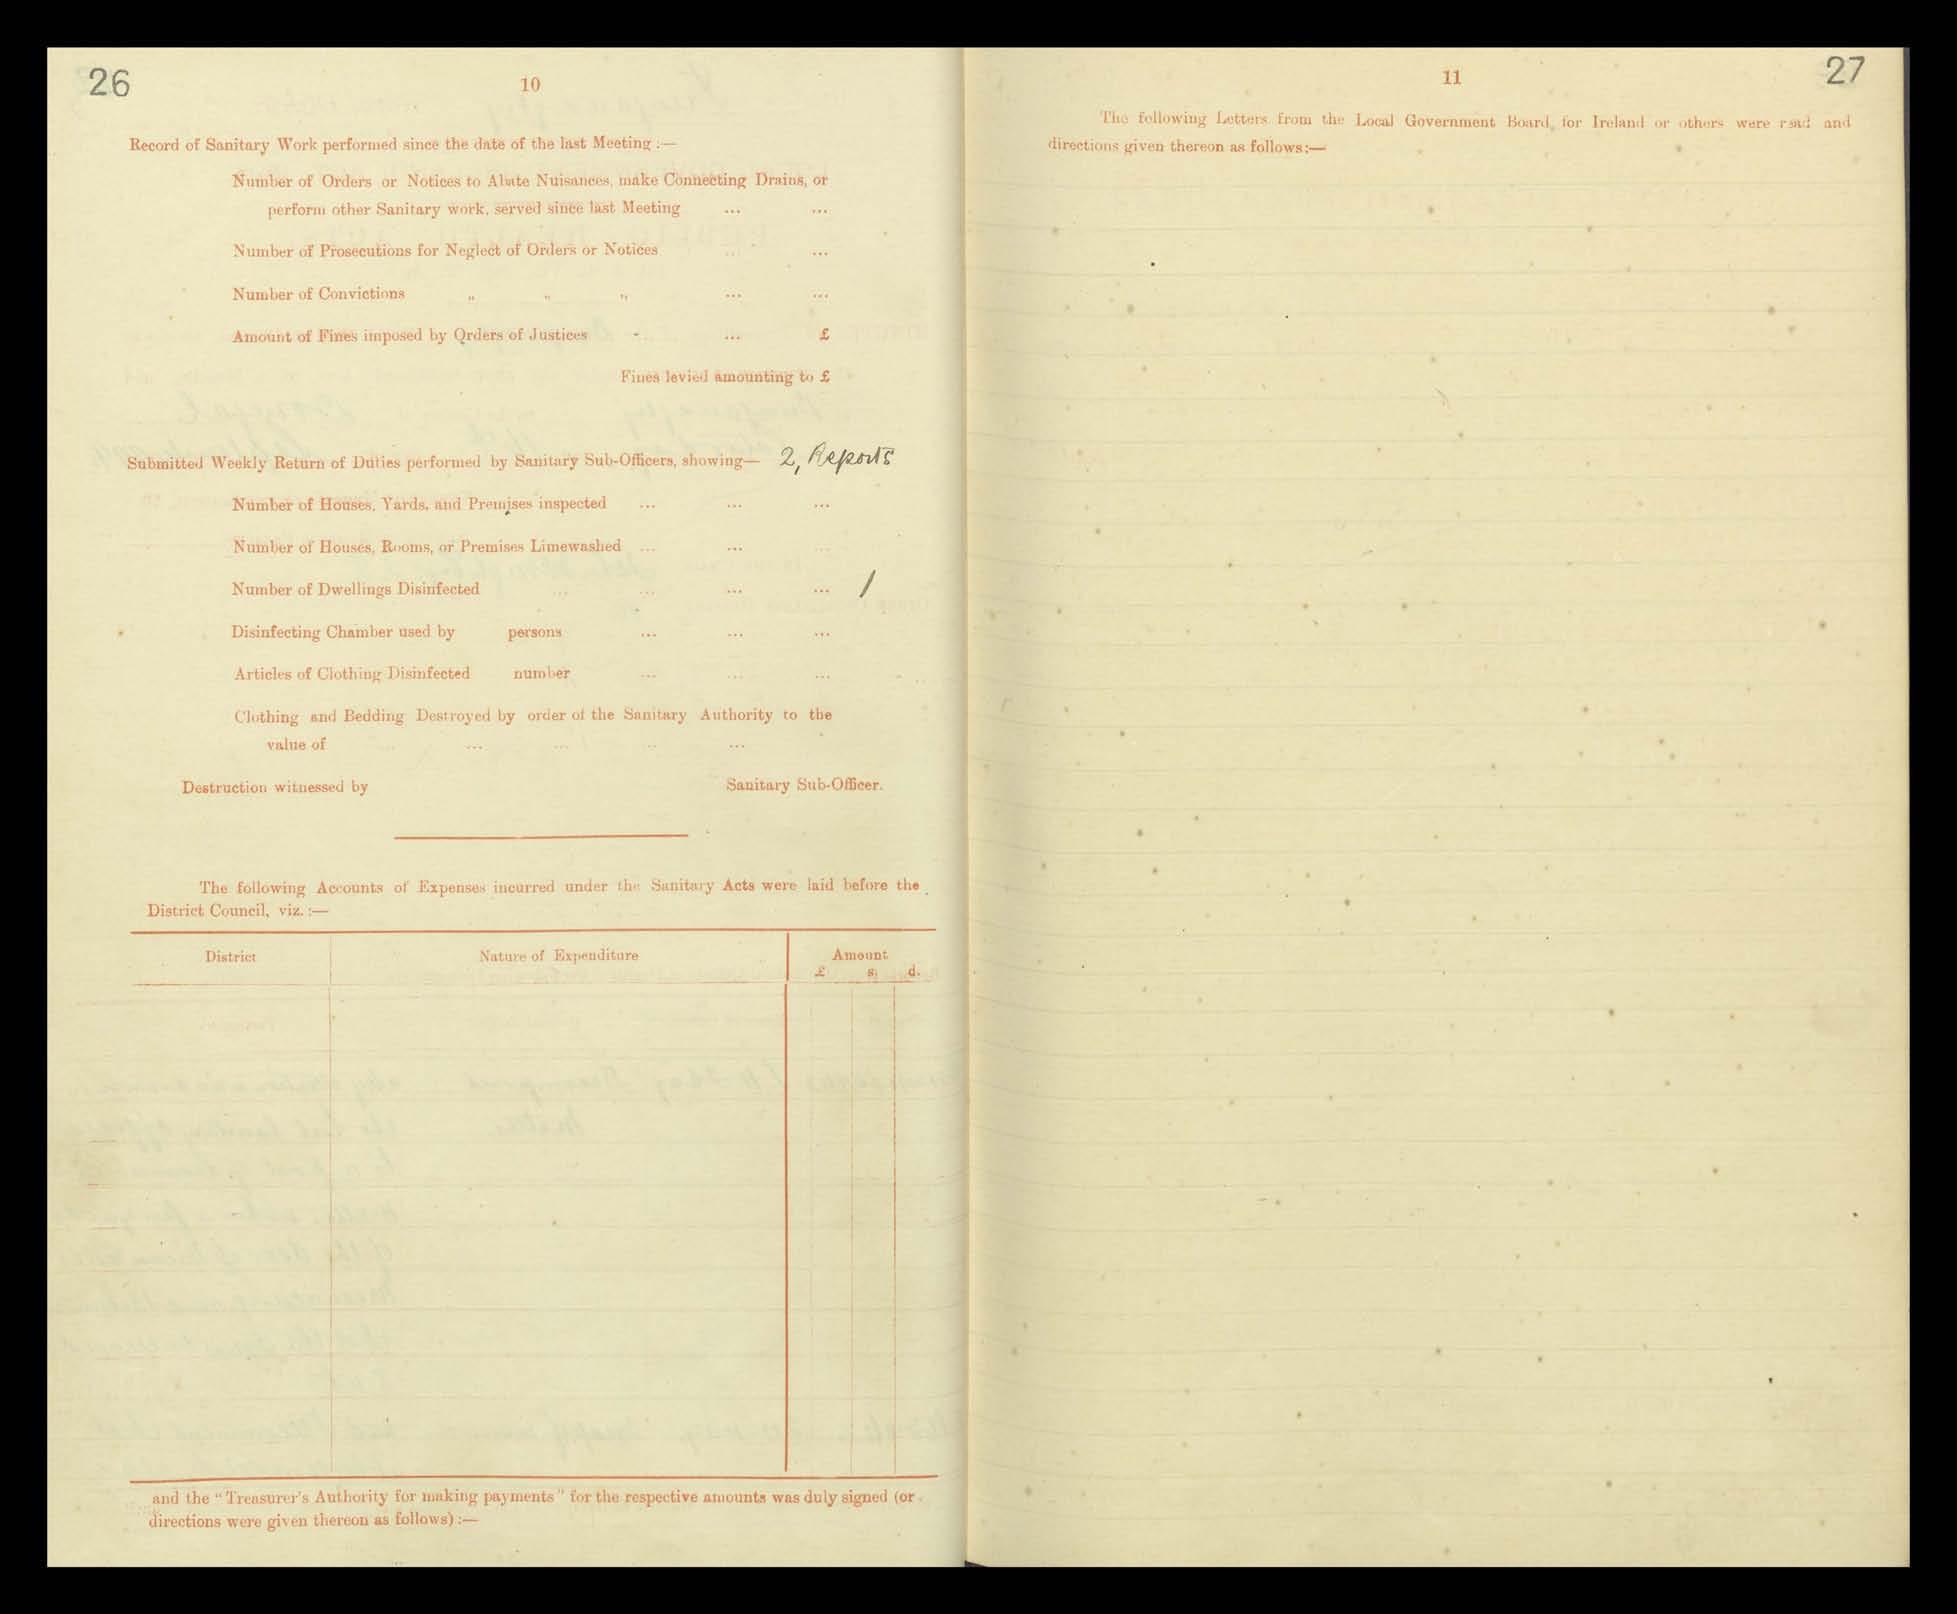 26
10
Record of Sanitary Work performed since the date of the last Meeting :—
Number of Orders or Notices to Abate Nuisances, make Connecting Drains, or
perform other Sanitary work, served since last Meeting ... ...
Number of Prosecutions for Neglect of Orders or Notices ... ...
Number of Convictions „ „ „ ... ...
Amount of Fines imposed by Orders of Justices ... ... £
Fines levied amounting to £
Submitted Weekly Return of Duties performed by Sanitary Sub-Officers, showing— 2, Reports
Number of Houses, Yards, and Premises inspected ... ... ...
Number of Houses, Rooms, or Premises Limewashed ... ... ...
Number of Dwellings Disinfected ... ... ... ... 1
Disinfecting Chamber used by persons ... ... ...
Articles of Clothing Disinfected number ... ... ...
Clothing and Bedding Destroyed by order of the Sanitary Authority to the
value of ... ... ... ... ...
Destruction witnessed by Sanitary Sub-Officer.
The following Accounts of Expenses incurred under the Sanitary Acts were laid before the
District Council, viz. :—
District Nature of Expenditure Amount
£ s. d.
and the “Treasurer's Authority for making payments” for the respective amounts was duly signed (or
directions were given thereon as follows) :—
11
27
The following Letters from the Local Government Board, for Ireland or others were read and
directions given thereon as follows:—